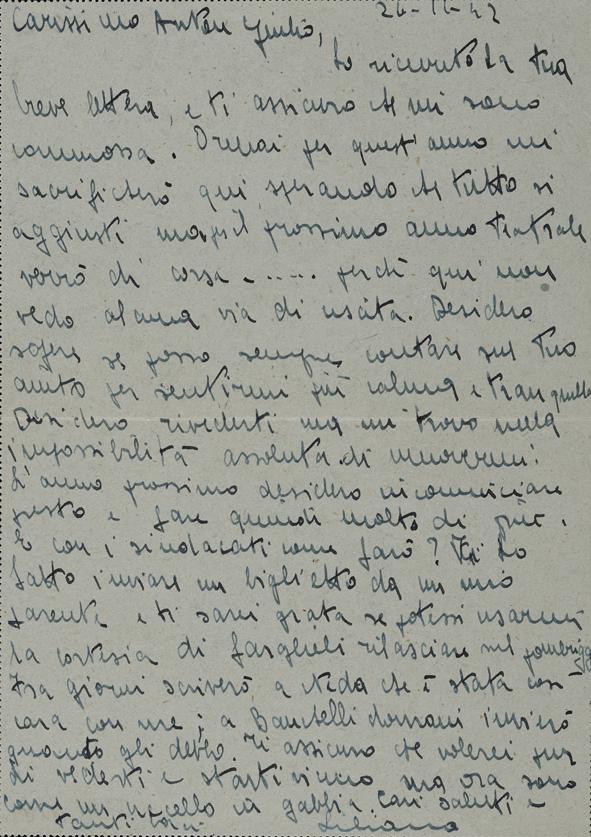 Carissimo Anton Giulio, 26-11-42
ho ricevuto la tua
breve lettera, e ti assicuro che mi sono
commossa. Ormai per quest'anno mi
sacrificherò qui sperando che tutto si
aggiusti ma il prossimo anno teatrale
verrò di corsa ...... perché qui non
vedo alcuna via di uscita. Desidero
sapere se posso sempre contare sul tuo
aiuto per sentirmi più calma e tranquilla
Desidero rivederti ma mi trovo nella
impossibilità assoluta di muovermi.
L'anno prossimo desidero ricominciare
presto e fare quindi molto di più.
E con i sindacati come farò? Ti ho
fatto inviare un biglietto da un mio
parente e ti sarei grata se potessi usarmi
la cortesia di farglieli rilasciare sul pomeriggio
Fra giorni scriverò a Neda che è stata così
cara con me; a domani invierò
quanto gli debbo. Ti assicuro che volerei pur
di vederti e starti vicino ma ora sono
come un uccello in gabbia. Cari saluti e
tanti